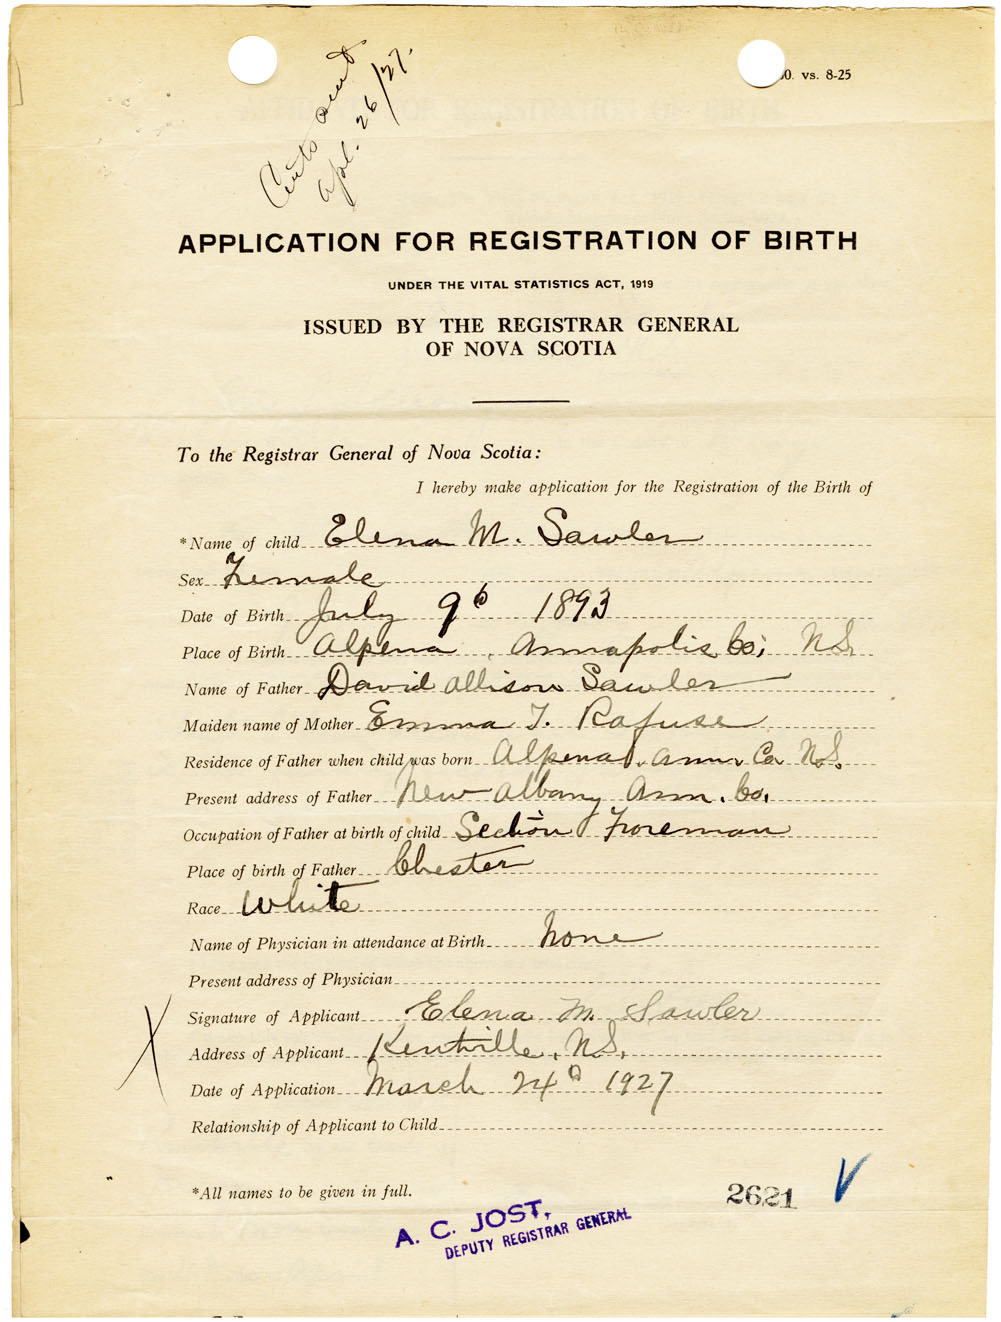 Certs sent
Apl. 26/27.
0. vs. 8-25
APPLICATION FOR REGISTRATION OF BIRTH
UNDER THE VITAL STATISTICS ACT, 1919
ISSUED BY THE REGISTRAR GENERAL
OF NOVA SCOTIA
To the Registrar General of Nova Scotia:
I hereby make application for the Registration of the Birth of
*Name of child Elena M. Sawler
Sex Female
Date of Birth July 9th 1893
Place of Birth Alpena, Annapolis Co; N.S.
Name of Father David Allison Sawler
Maiden name of Mother Emma J. Rafuse
Residence of Father when child was born Alpena, Ann. Co N.S.
Present address of Father New Albany Ann. Co.
Occupation of Father at birth of child Section Foreman
Place of birth of Father Chester
Race White
Name of Physician in attendance at Birth None
Present address of Physician
Signature of Applicant Elena M. Sawler
Address of Applicant Kentville, N.S.
Date of Application March 24th 1927
Relationship of Applicant to Child
*All names to be given in full.
2621
A. C. JOST,
DEPUTY REGISTRAR GENERAL